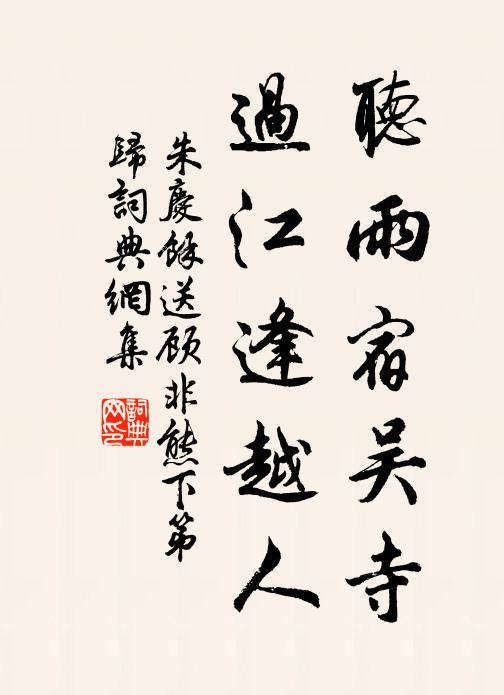 聽雨宿吳寺
過江逢越人
朱慶餘送顧非熊下第
歸詞典網集
詞典
網印